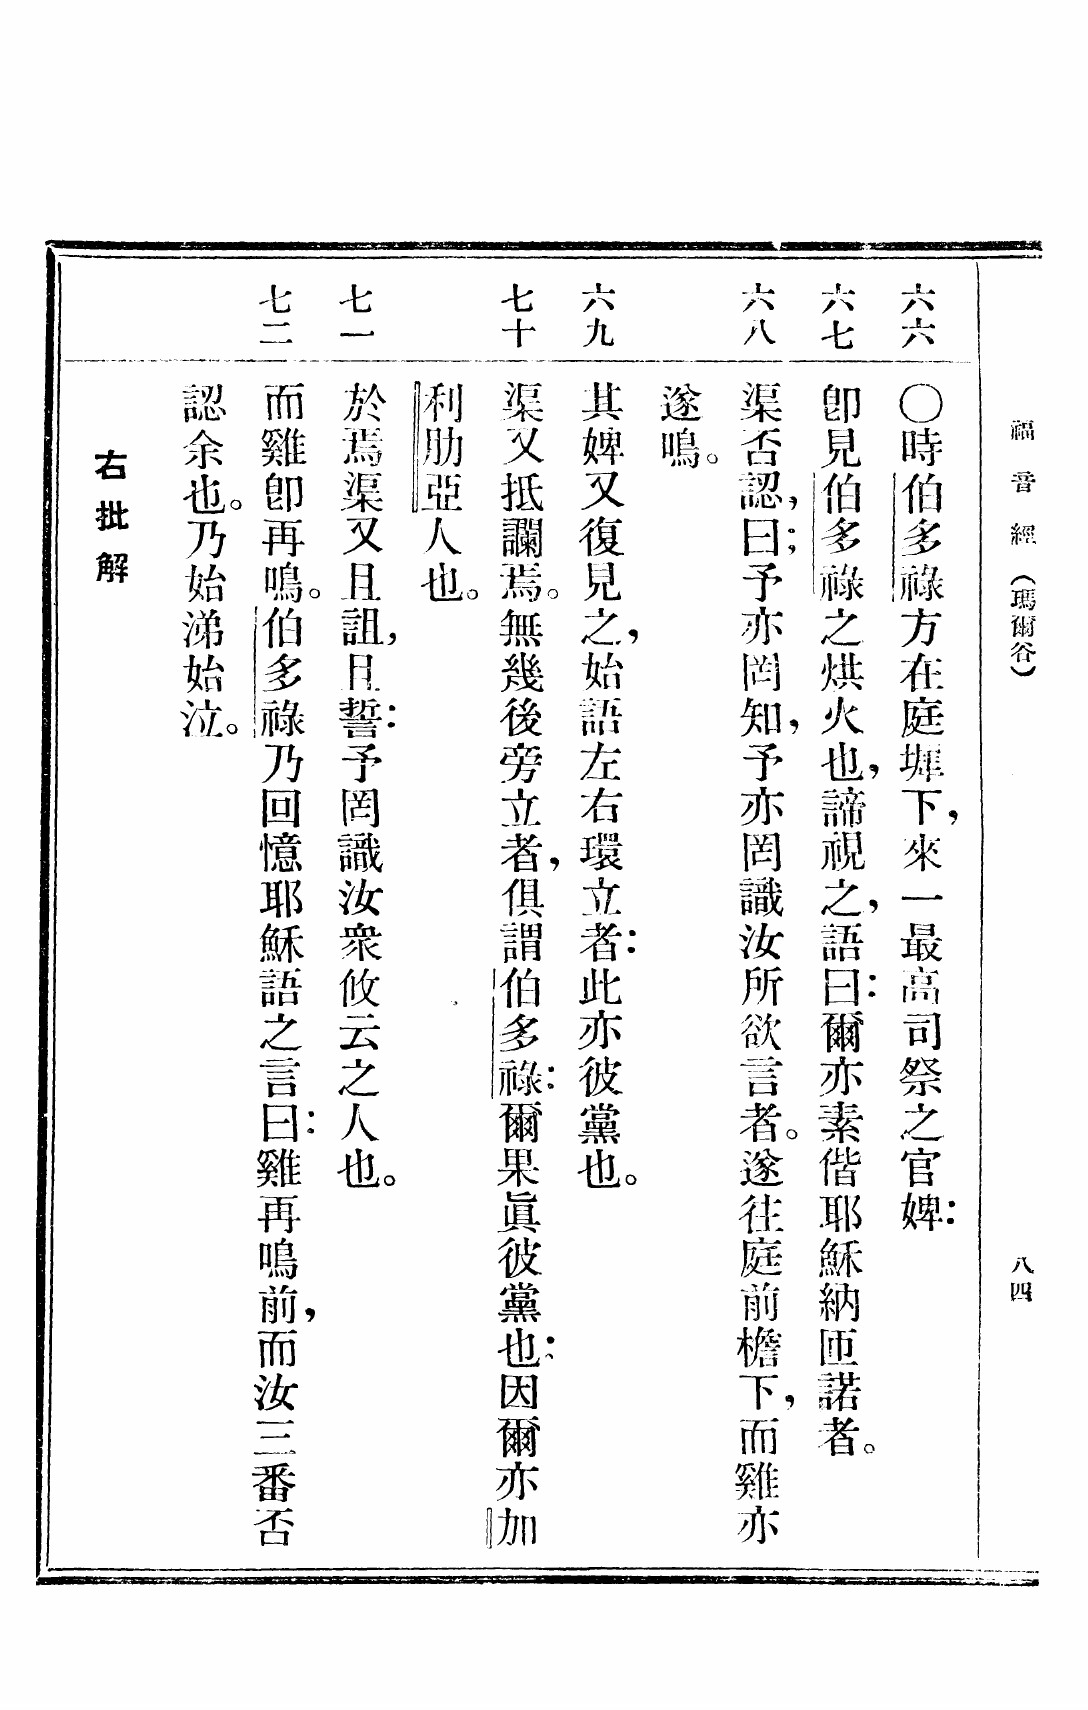 福音經（瑪爾谷） 八四
六六 〇時伯多祿方在庭墀下，來一最高司祭之官婢：
六七 卽見伯多祿之烘火也，諦視之，語曰：爾亦素偕耶穌納匝諾者。
六八 渠否認，曰；予亦罔知，予亦罔識汝所欲言者。遂往庭前檐下，而雞亦
遂鳴。
六九 其婢又復見之，始語左右環立者：此亦彼黨也。
七十 渠又抵讕焉。無幾後旁立者，俱謂伯多祿：爾果眞彼黨也：因爾亦加
利肋亞人也。
七一 於焉渠又且詛，且誓：予罔識汝衆攸云之人也。
七二 而雞卽再鳴。伯多祿乃回憶耶穌語之言曰：雞再鳴前，而汝三番否
認余也。乃始涕始泣。
右批解